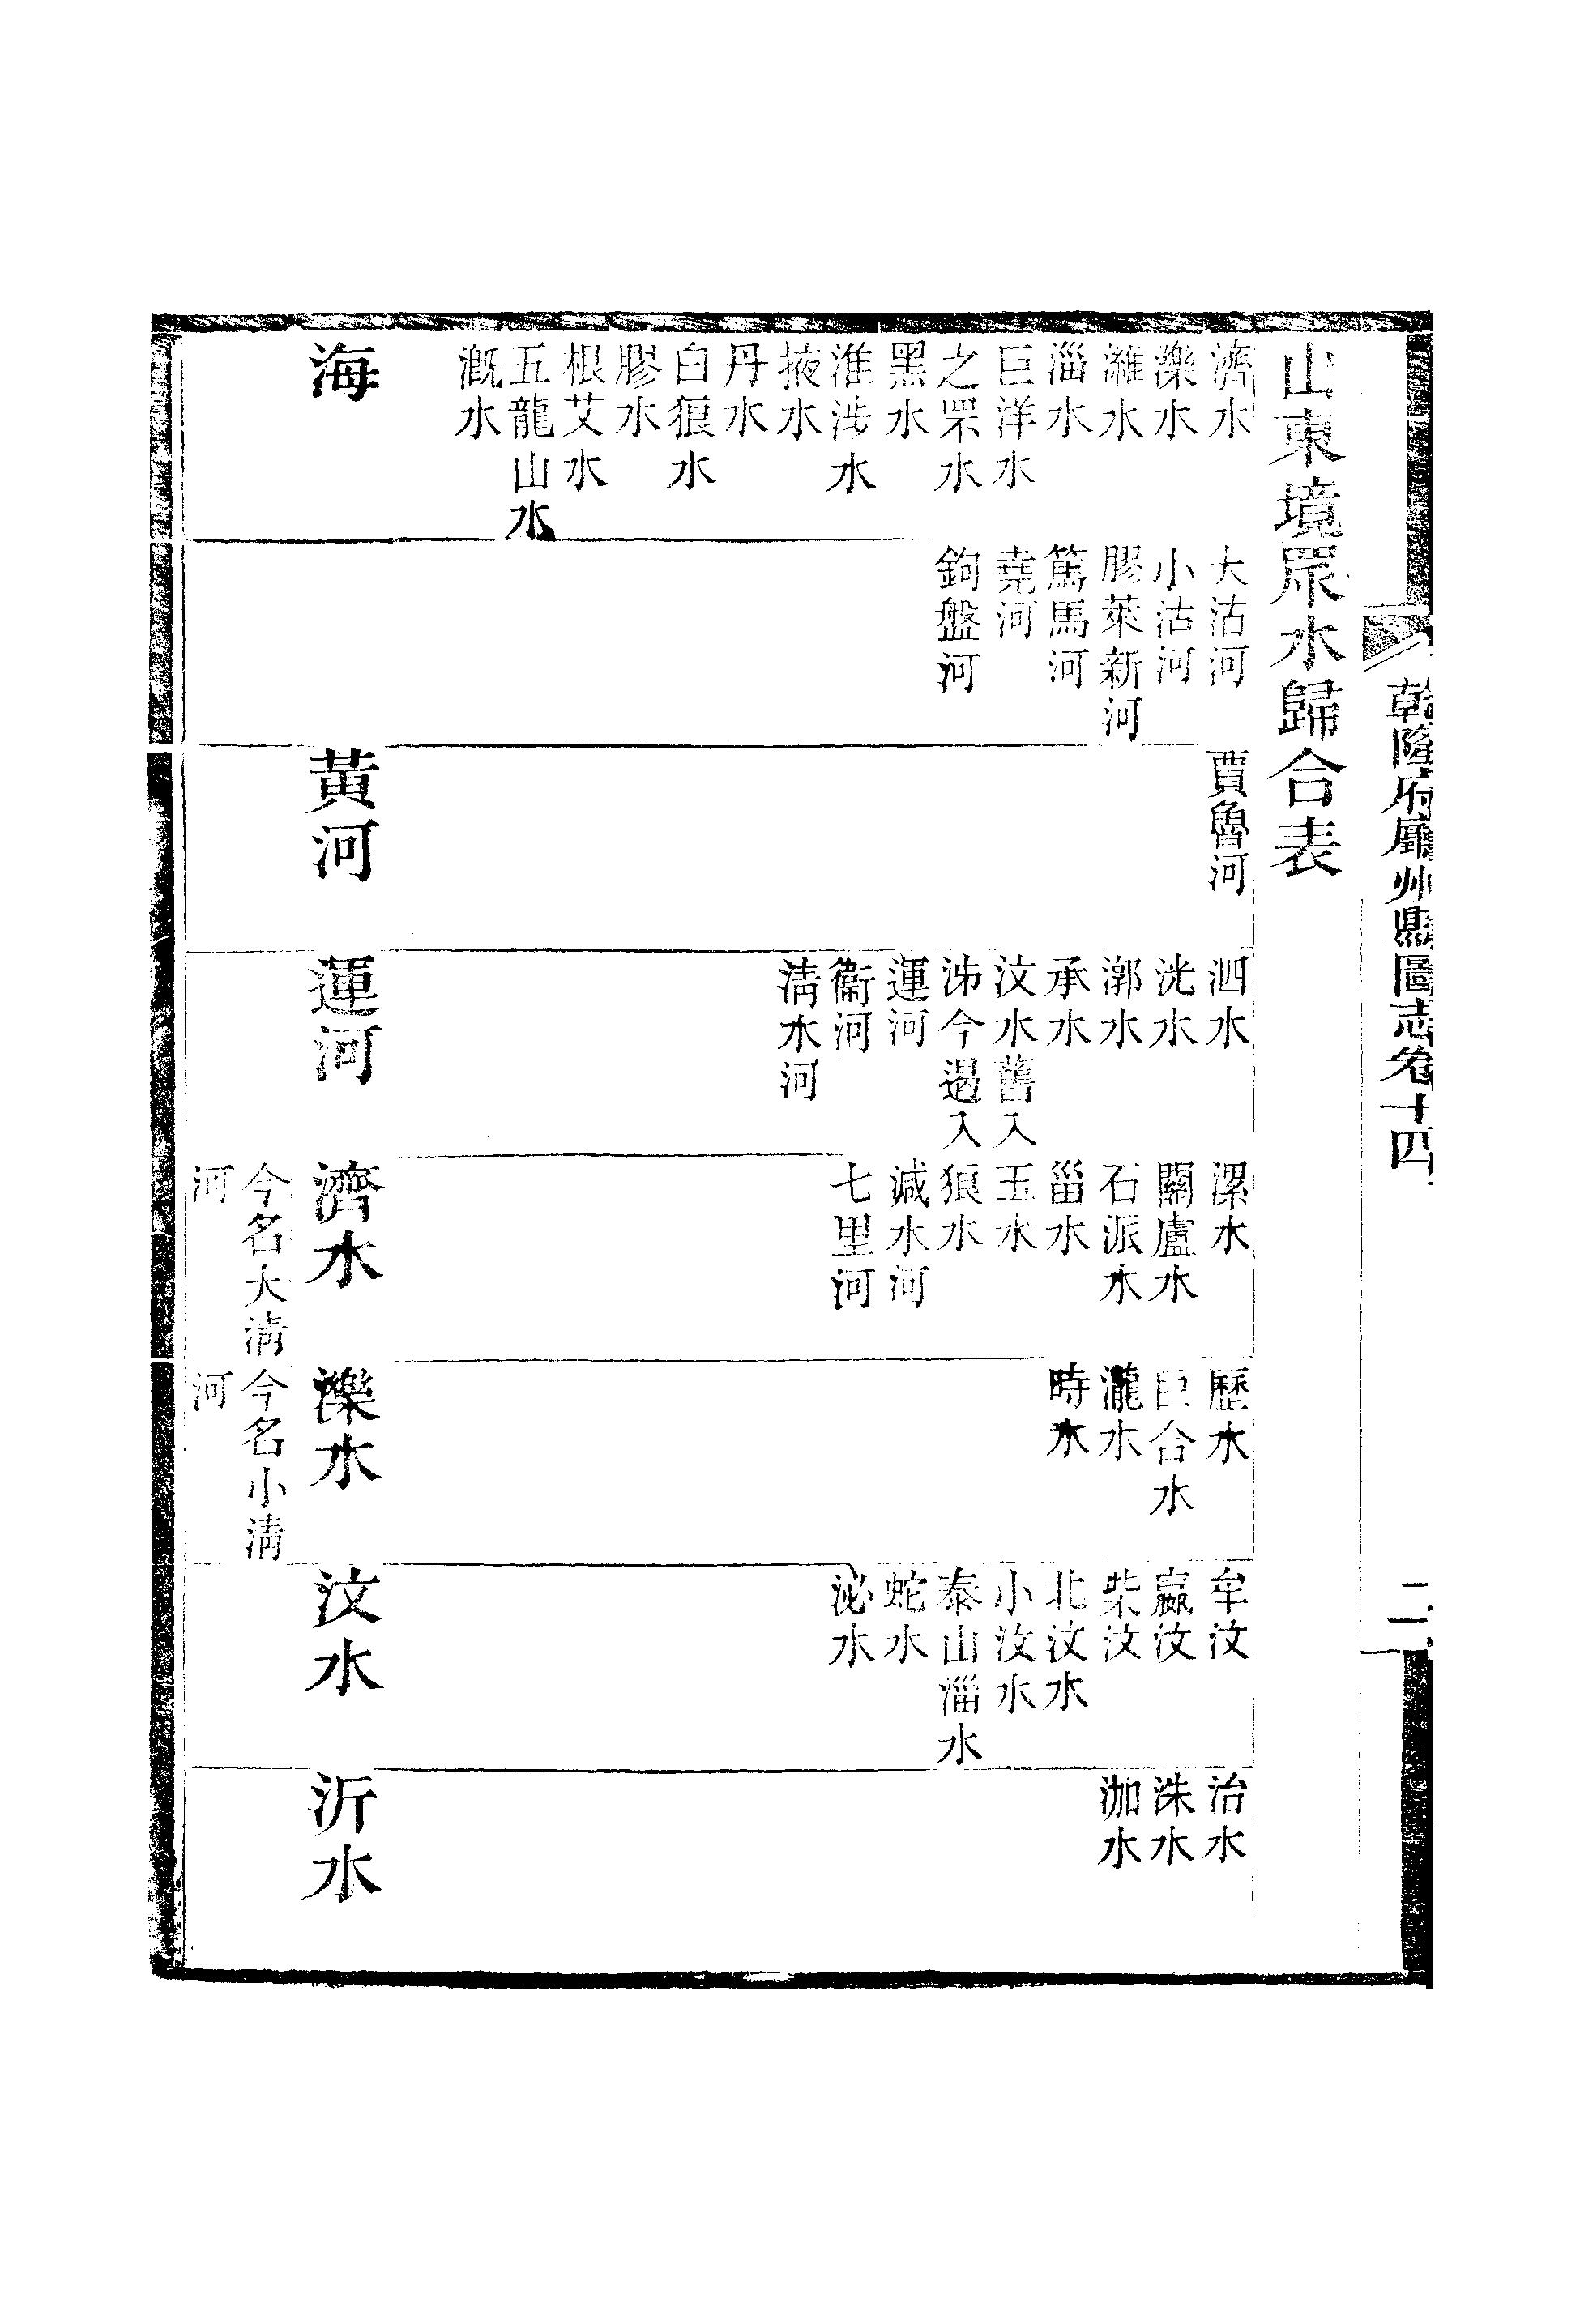 乾隆府廳州縣圖志卷十四
二
山東境眾水歸合表
濟水
濼水
濰水
淄水
巨洋水
之罘水
黑水
淮涉水
掖水
丹水
白狼水
膠水
根艾水
五龍山水
溉水
海
大沽河
小沽河
膠萊新河
篤馬河
堯河
鉤盤河
賈魯河
黃河
泗水
洸水
漷水
承水
汶水舊入
泲今遏入
運河
衞河
清水河
運河
漯水
關盧水
石派水
甾水
玉水
狼水
減水河
七里河
濟水
今名大清
河
歷水
巨合水
瀧水
時水
濼水
今名小清
河
牟汶
嬴汶
柴汶
北汶水
小汶水
泰山淄水
蛇水
泌水
汶水
治水
洙水
泇水
沂水